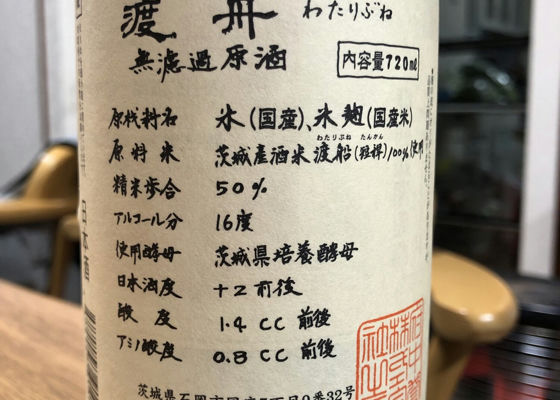 渡舟 わたりぶね
無濾過原酒
内容量720ml
原材料名 米(国産)、米麹(国産米)
わたりぶね たんかん
原料米 茨城産酒米 渡船(短稈)100%使用
精米歩合 50%
アルコール分 16度
使用酵母 茨城県培養酵母
日本酒度 +2前後
酸度 1.4CC前後
アミノ酸度 0.8CC前後
茨城県石岡市国府5丁目9番32号
日本酒